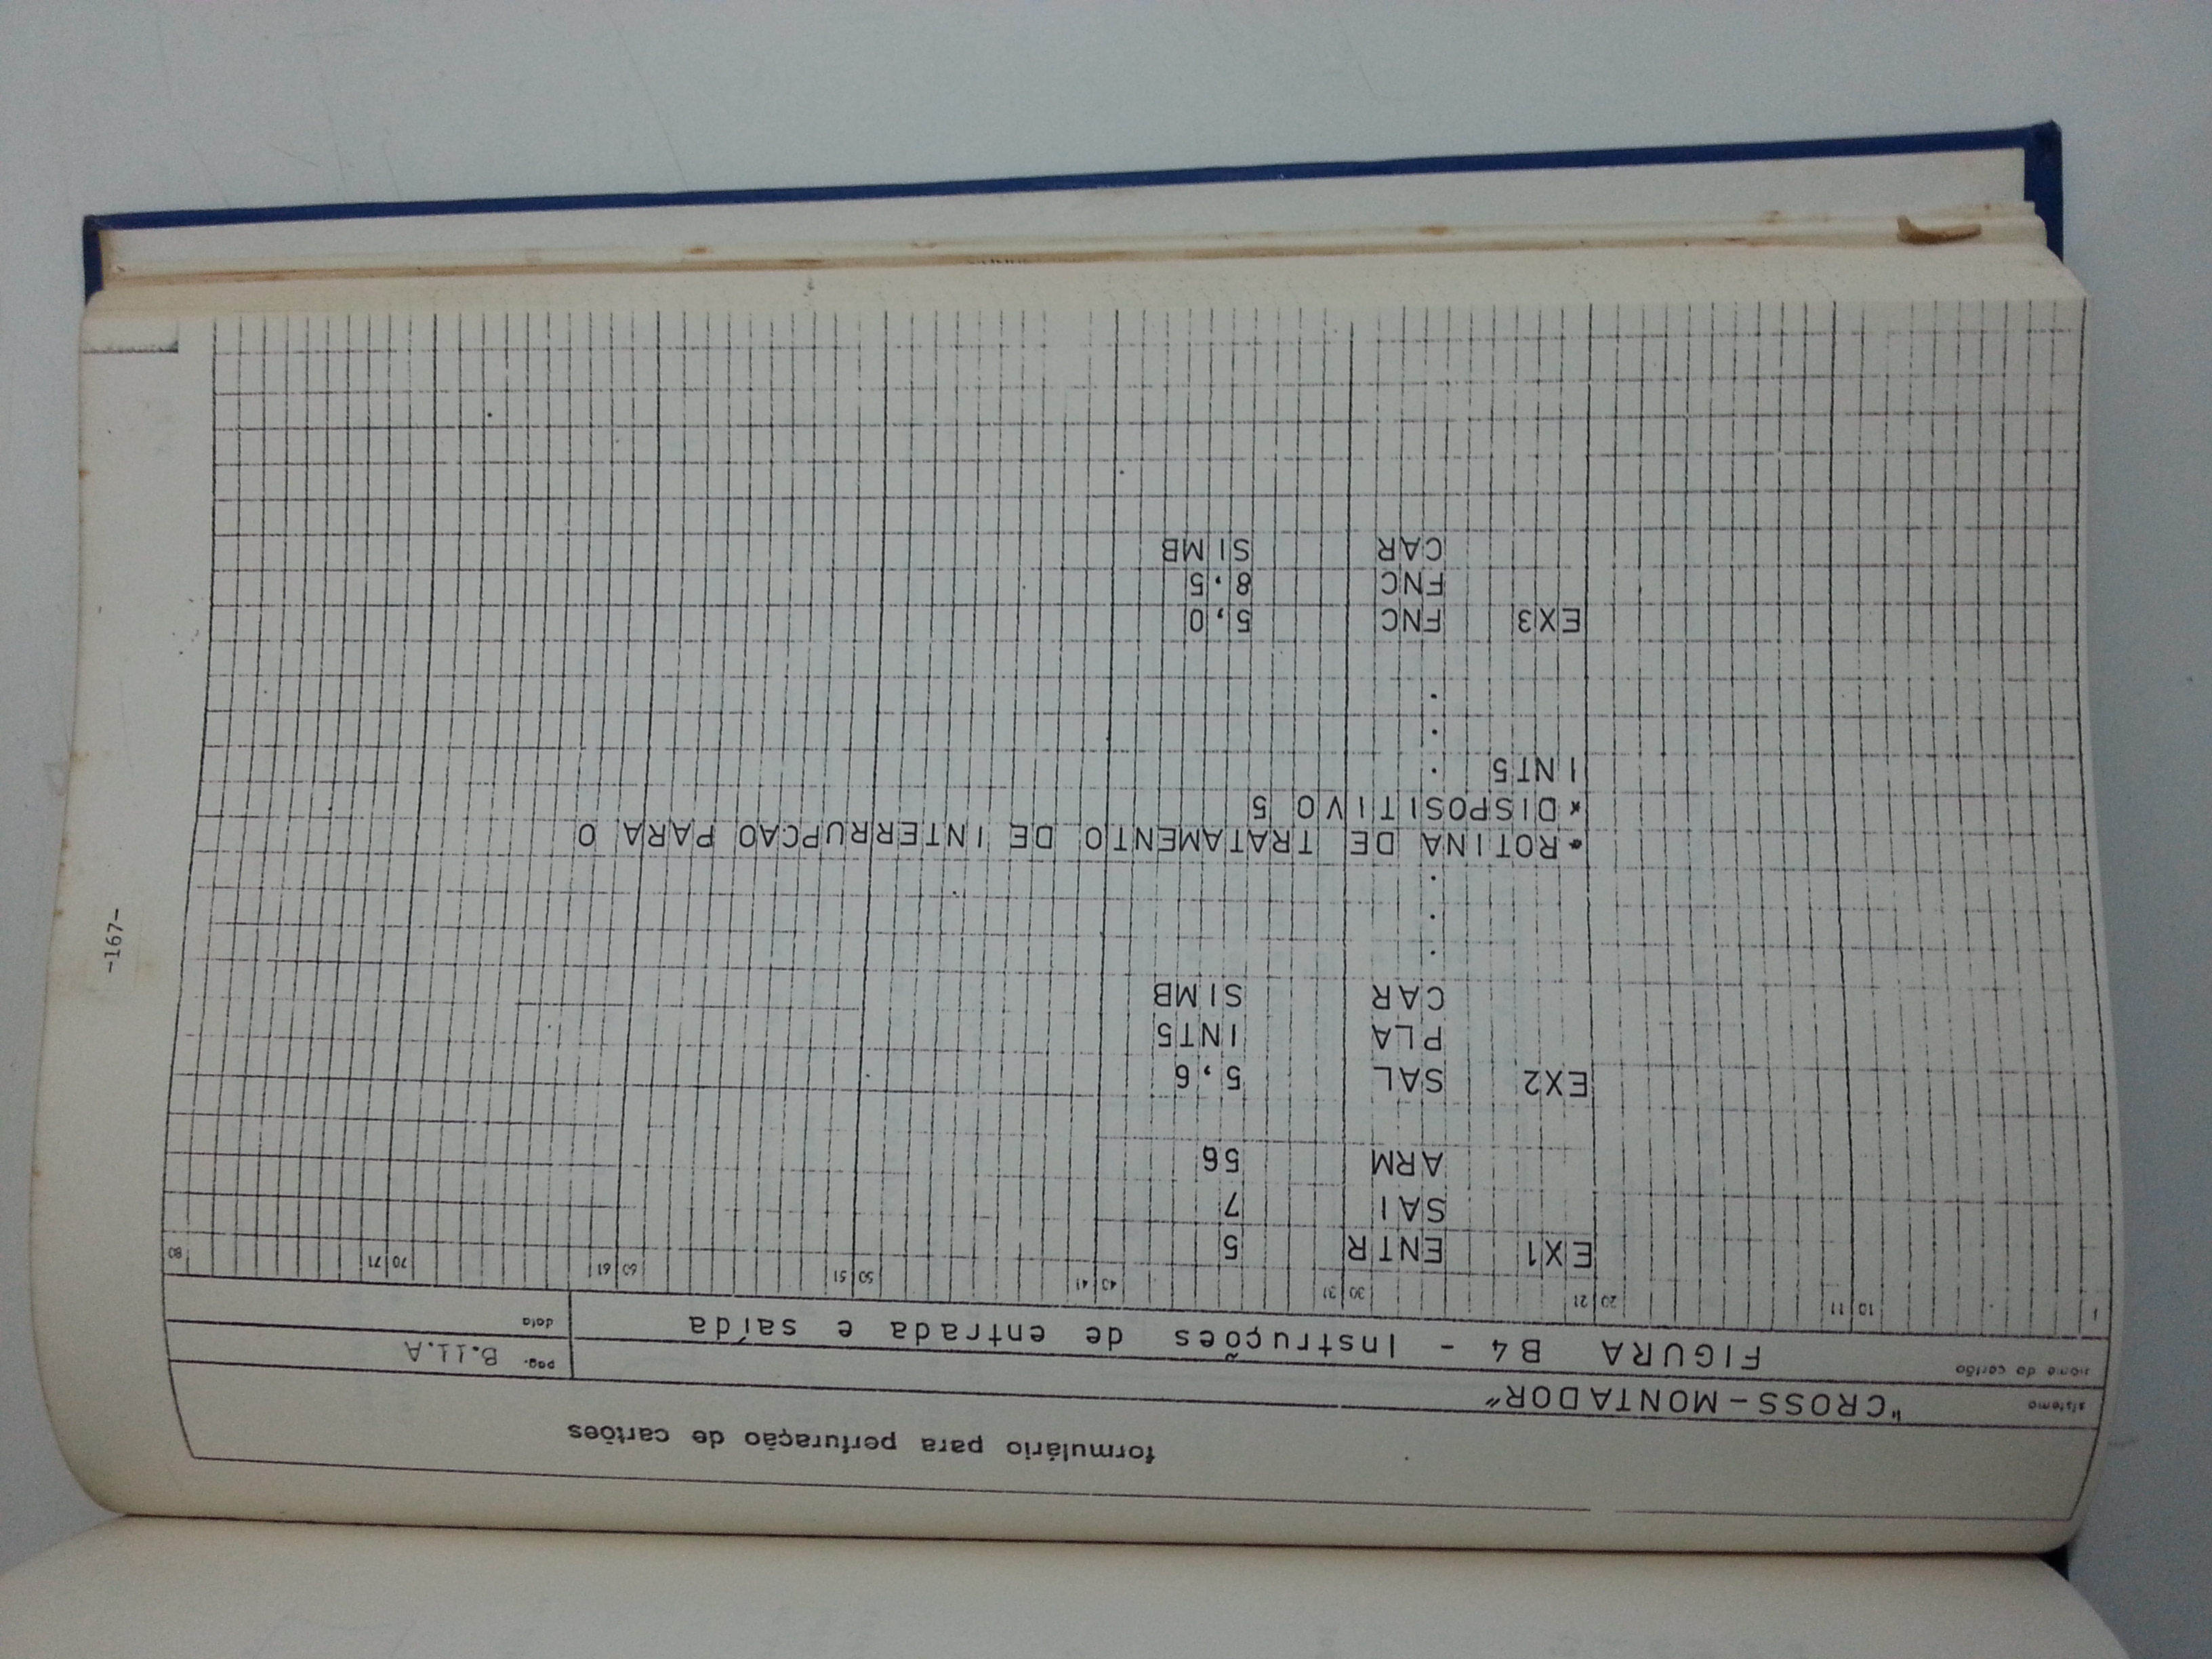 -167-
formulário para perfuração de cartões
sistema "CROSS-MONTADOR" pag. B.11.A
nome do cartão FIGURA B4 - Instruções de entrada e saída data
1 10 11 20 21 30 31 40 41 50 51 60 61 70 71 80
EX1 ENTR 5
SAI 7
ARM 56
EX2 SAL 5,6
PLA INT5
CAR SIMB
.
.
.
* ROTINA DE TRATAMENTO DE INTERRUPCAO PARA O
* DISPOSITIVO 5
INT5 .
.
.
.
EX3 FNC 5,0
FNC 8,5
CAR SIMB